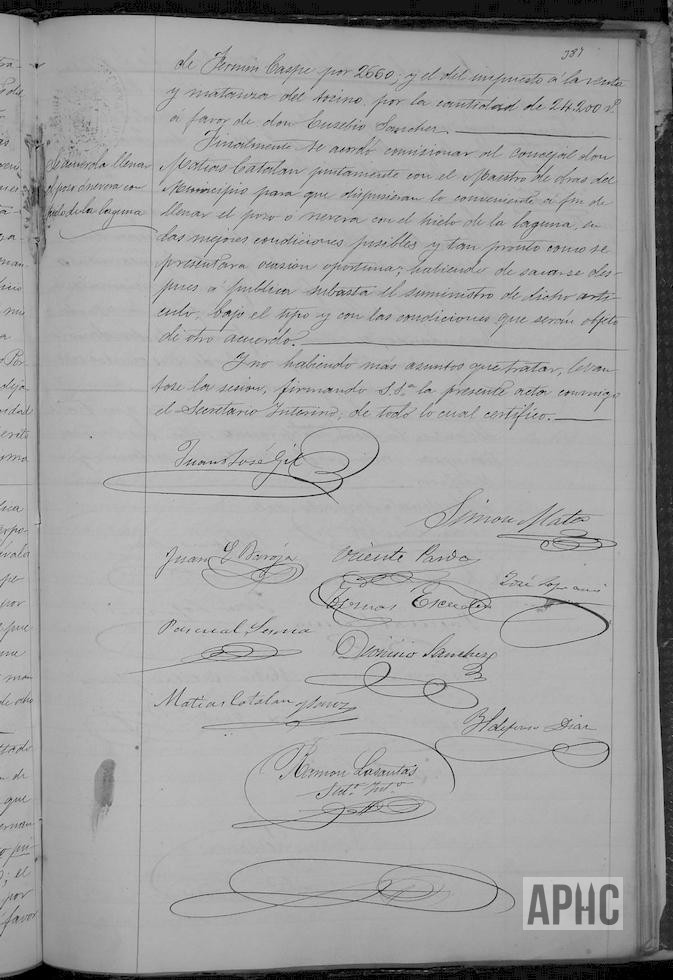 337
de Fermin Caspe por 2550; y el del impuesto á la venta
y matanza del tocino, por la cantidad de 24.200 rs.
á favor de don Eusebio Sanchez.
Finalmente se acordó comisionar al concejal don
Matias Catalan juntamente con el Maestro de obras del
Municipio para que dispusieran lo conveniente á fin de
llenar el pozo ó nevera con el hielo de la laguna, en
las mejores condiciones posibles y tan pronto como se
presentara ocasion oportuna; habiendo de sacarse des-
pues á publica subasta el suministro de dicho arti-
culo, bajo el tipo y con las condiciones que serán objeto
de otro acuerdo.
Y no habiendo más asuntos que tratar, levan-
tose la sesion, firmando S.Sª la presente acta conmigo
el Secretario Interino; de todo lo cual certifico.
Se acuerda llenar
el pozo ó nevera con
hielo de la laguna
Juan José Gil
Simon Mata
Juan Baroja
Vicente Pardo
José
Escudero
Pascual Serna
Dionisio Sanchez
Matias Catalan
Yldefonso Diaz
Ramon Lasantas
Srio. Into.
APHC